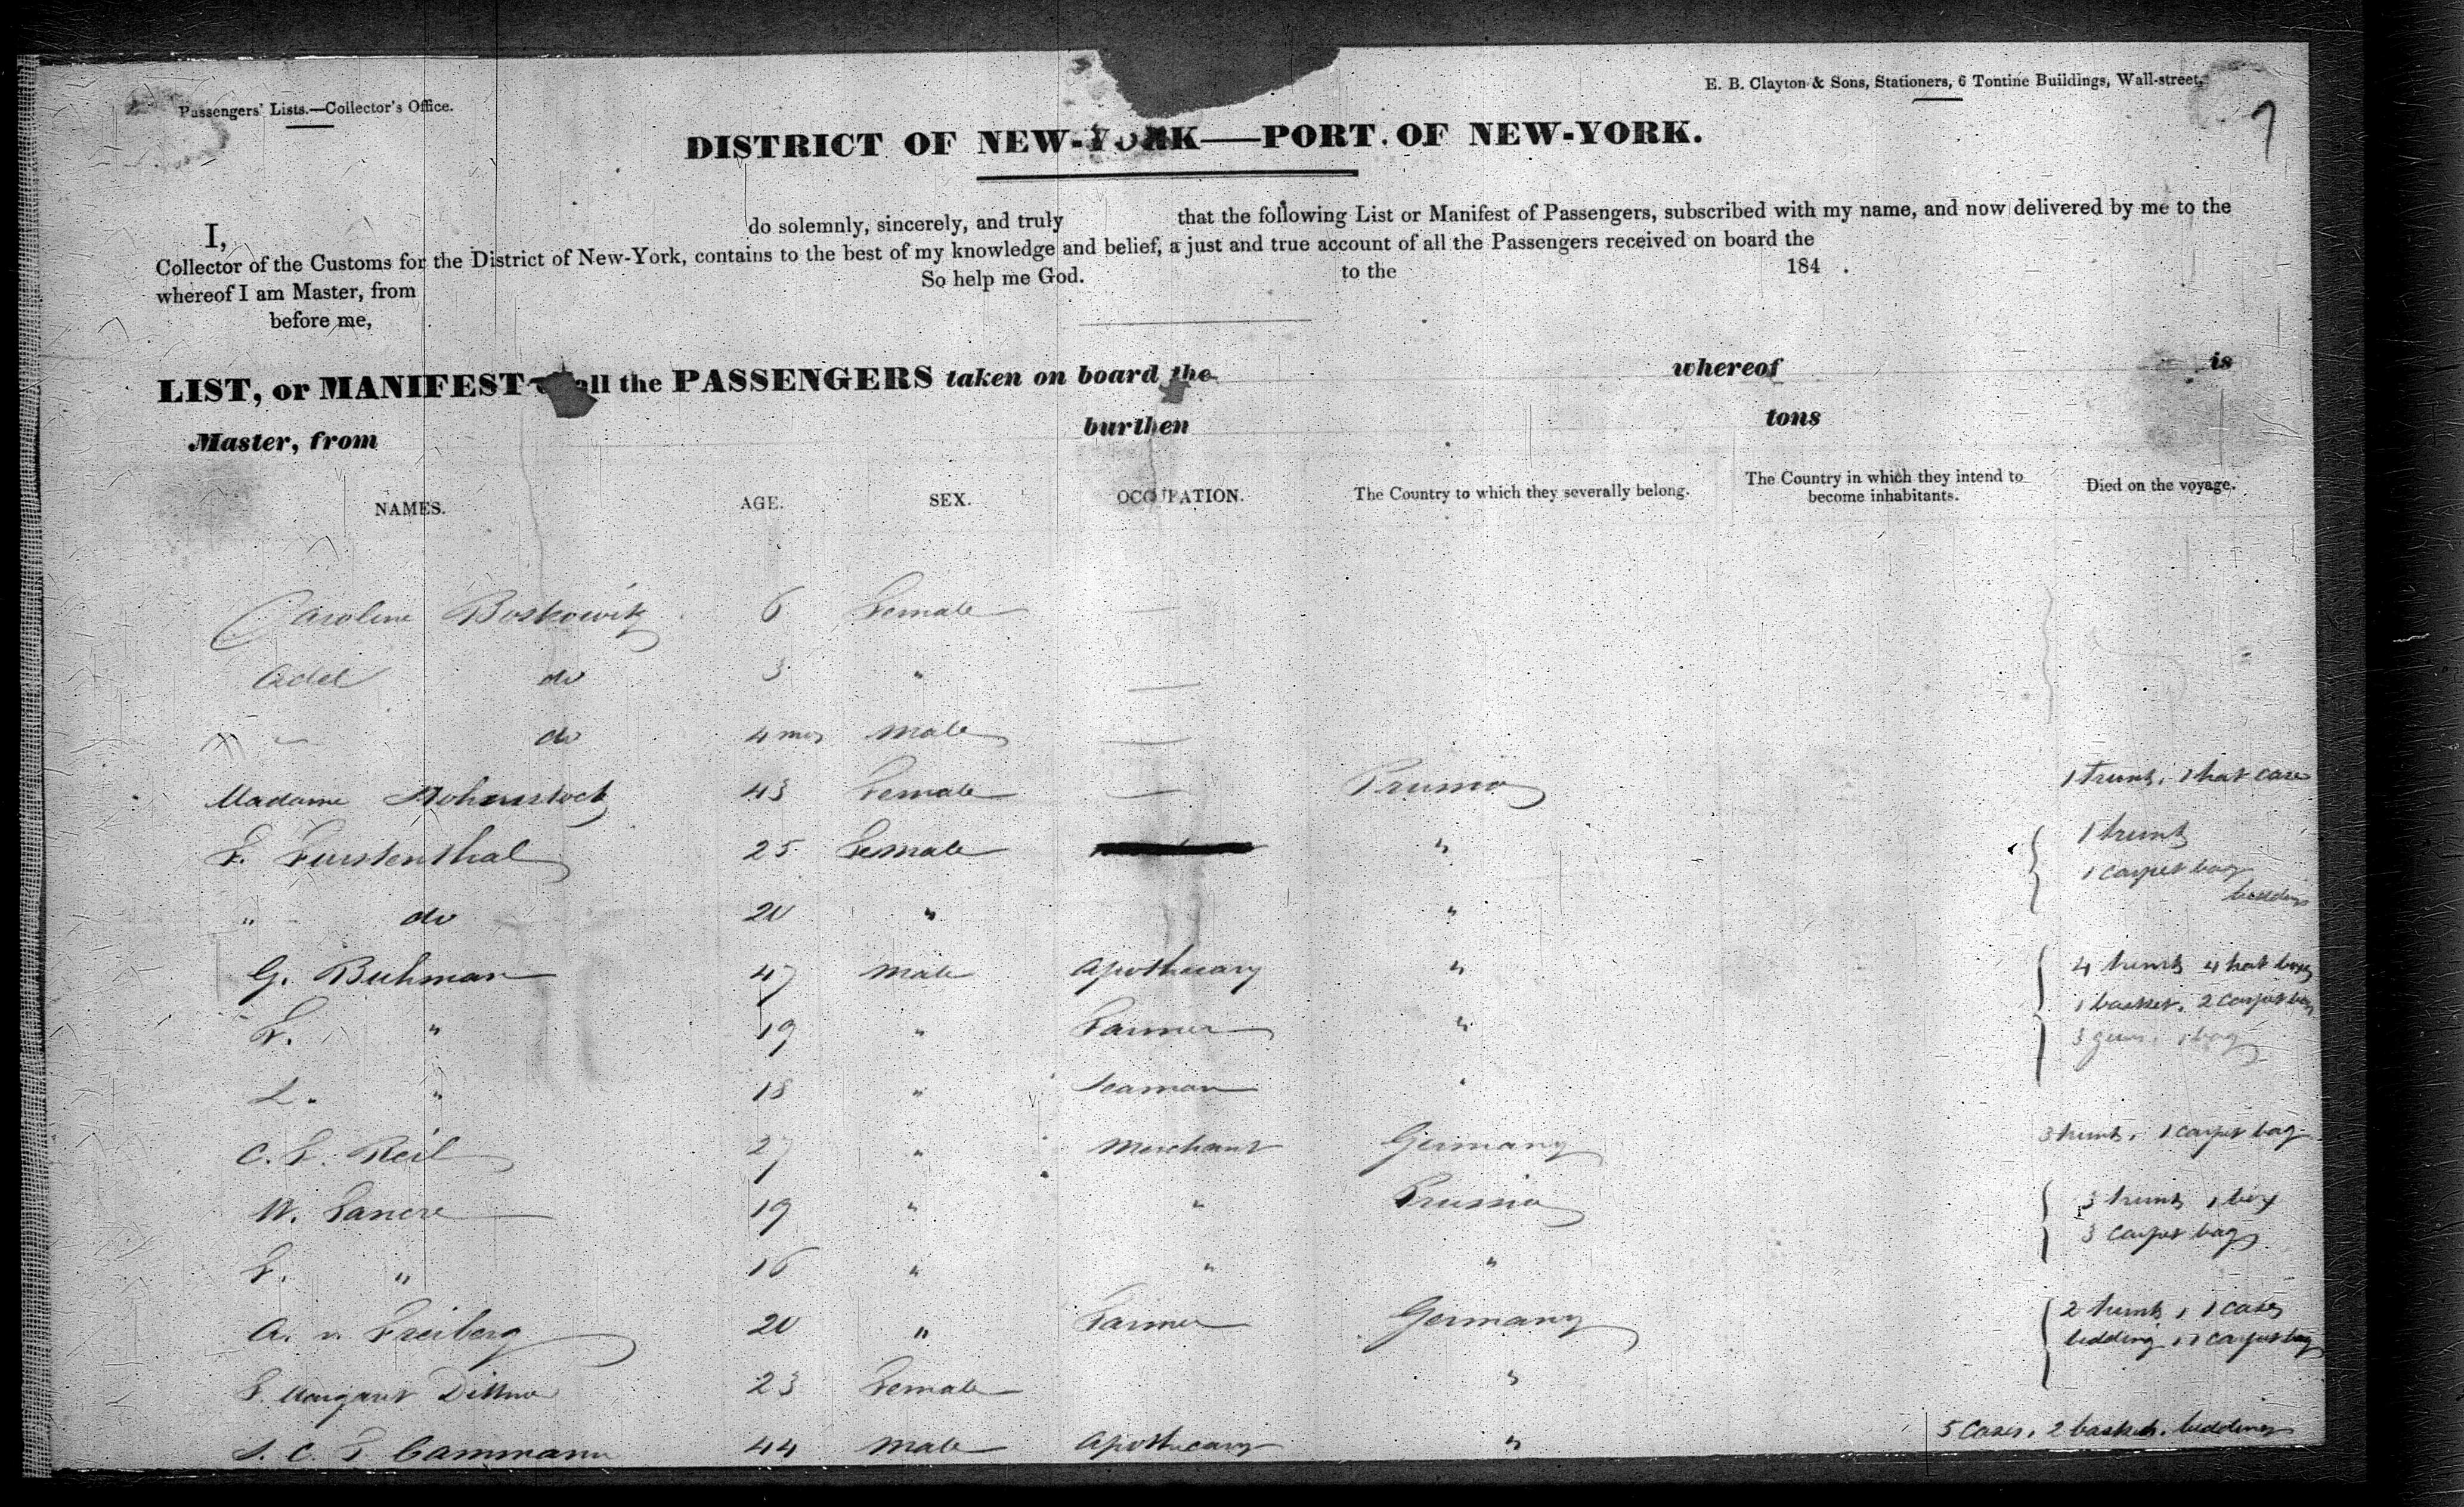 Passengers' Lists.—Collector's Office.
E. B. Clayton & Sons, Stationers, 6 Tontine Buildings, Wall-street,
7
DISTRICT OF NEW-YORK—PORT OF NEW-YORK.
I, do solemnly, sincerely, and truly that the following List or Manifest of Passengers, subscribed with my name, and now delivered by me to the
Collector of the Customs for the District of New-York, contains to the best of my knowledge and belief, a just and true account of all the Passengers received on board the
whereof I am Master, from So help me God. to the 184 .
before me,
LIST, or MANIFEST all the PASSENGERS taken on board the whereof is
Master, from burthen tons
NAMES. AGE. SEX. OCCUPATION. The Country to which they severally belong. The Country in which they intend to become inhabitants. Died on the voyage.
Caroline Boskowitz 6 Female —
Adel do 3 " —
" do 4 mos male —
Madame 43 Female — Prussia 1 trunk, 1 hat case
F. Furstenthal 25 Female " 1 trunk
1 carpet bag
bedding
" do 20 " "
G. Buhman 47 Male Apothecary " 4 trunks 4 hat boxes
F. " 19 " Farmer " 1 basket, 2 carpet bag
3 guns, 1 bag
L. " 18 " Seaman "
C. F. Reil 27 " Merchant Germany 3 trunks, 1 carpet bag
W. 19 " " Prussia 3 trunks 1 box
3 carpet bag
F. " 16 " " "
A. v. Freiberg 20 " Farmer Germany 2 trunks, 1 case
bedding, 1 carpet bag
F. Margaret 23 Female "
C. F. Cammann 44 Male Apothecary " 5 cases, 2 baskets, bedding